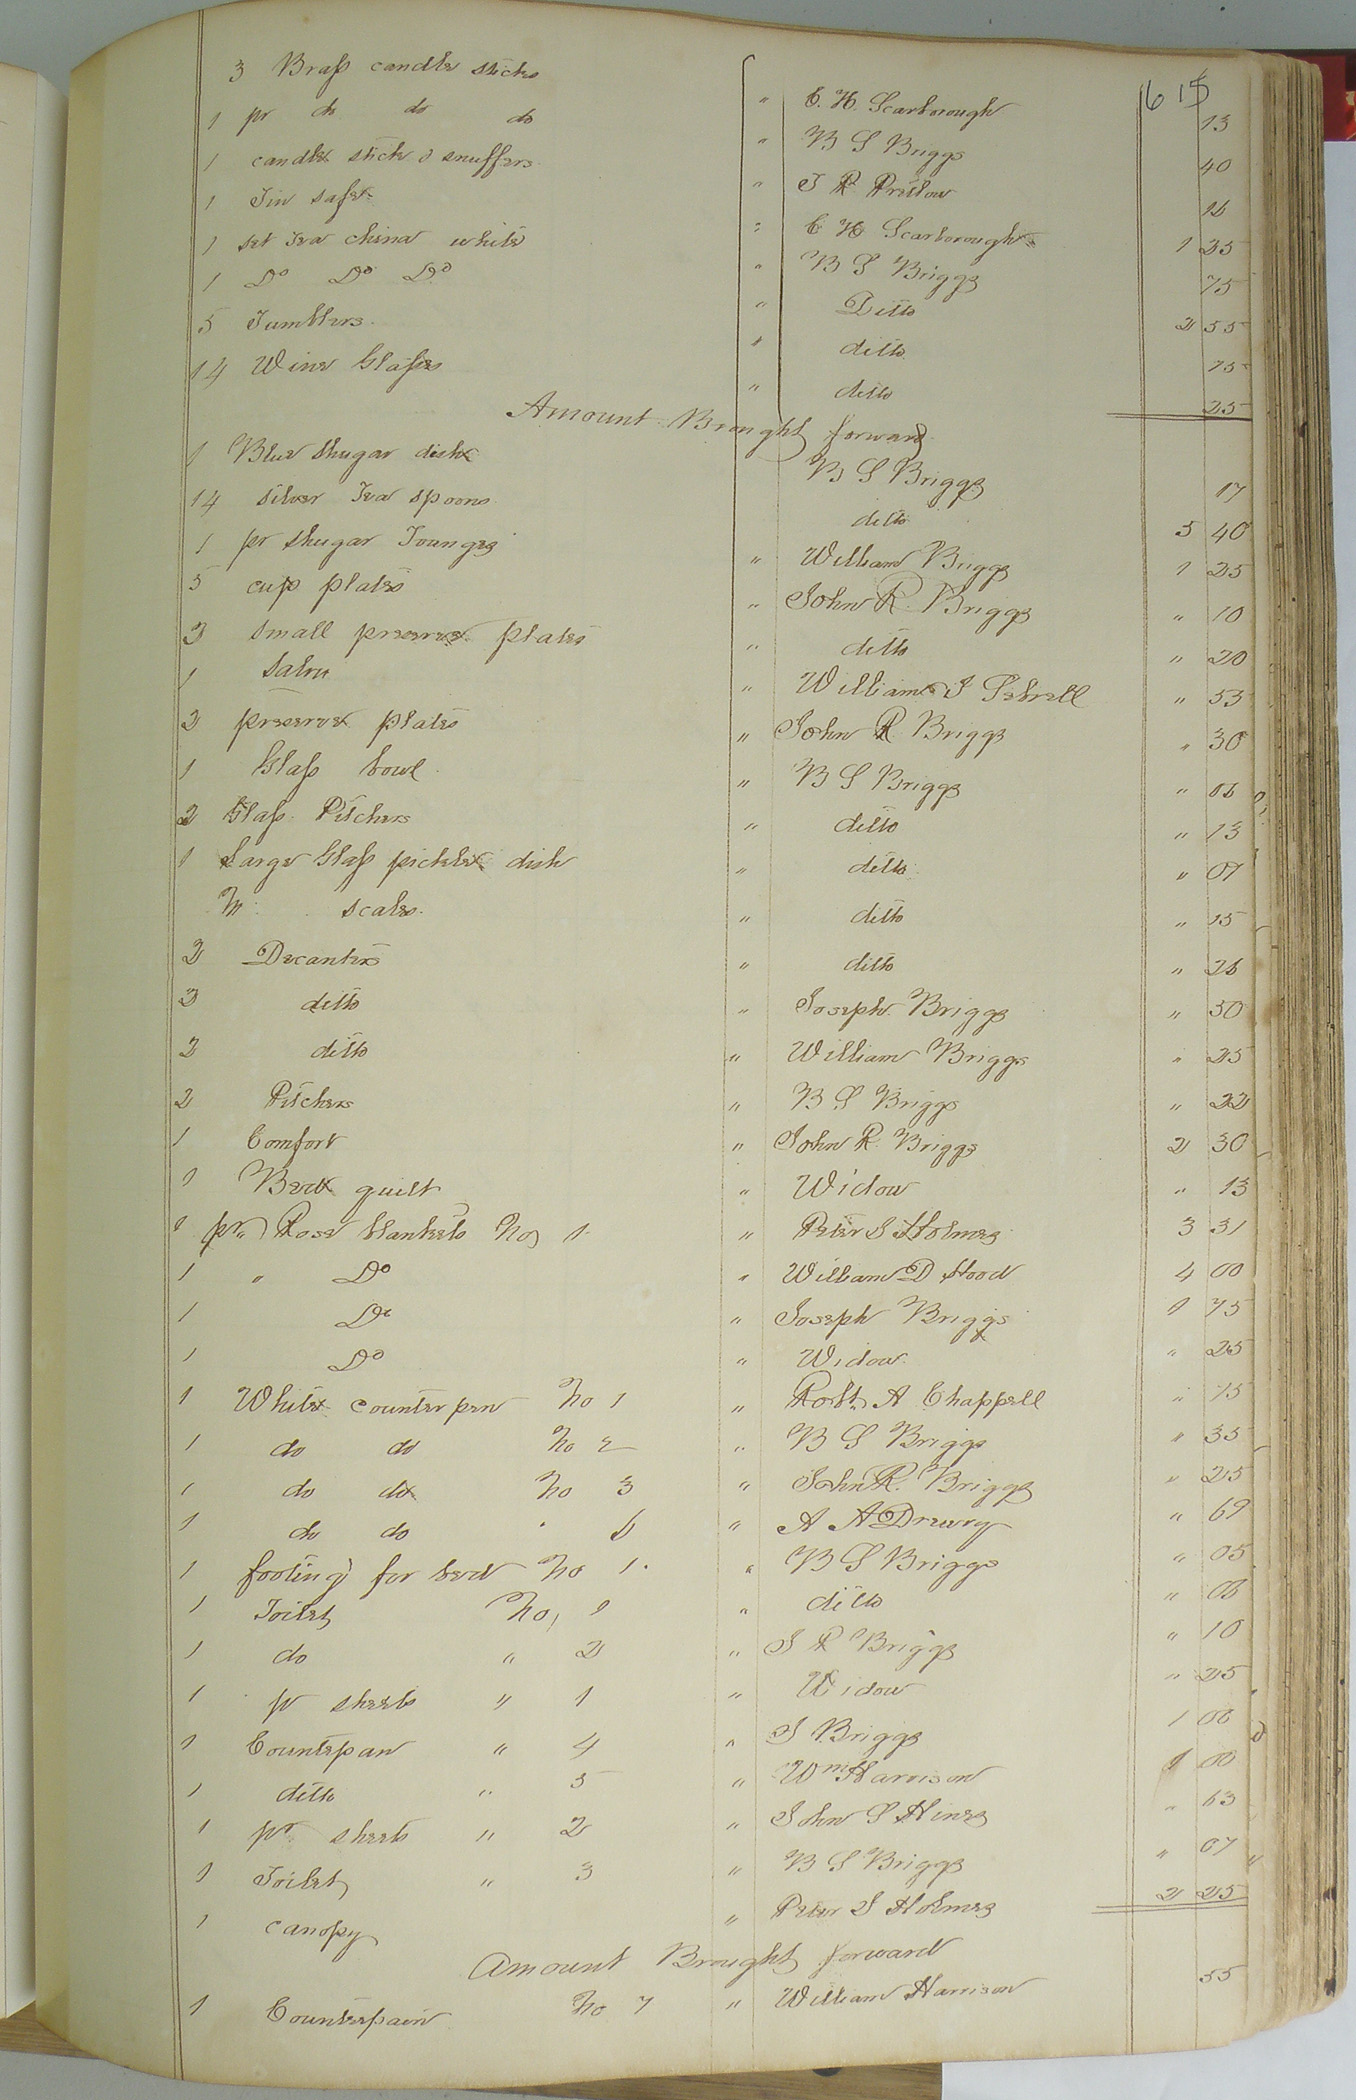 615
3 Brass candle sticks " C. H. Scarborough 13
1 pr do do do " B S Briggs 40
1 candle stick & snuffers " J R Pretlow 16
1 Tin safe " C H Scarborough 1 25
1 set Tea china white " B S Briggs 75
1 Do Do Do " Ditto 2 55
5 Tumblers " ditto 75
14 Wine Glasses " ditto 25
Amount Brought forward
1 Blue Shugar dish B S Briggs 17
14 silver Tea spoons ditto 5 40
1 pr shugar Tounges " William Briggs 1 25
5 cup plates " John R Briggs " 10
3 small preserve plates " ditto " 20
1 Salver " William J Febrell " 53
2 preserve plates " John R Briggs " 30
1 Glass bowl " B S Briggs " 06
2 Glass Pitchers " ditto " 13
1 Large Glass pickle dish " ditto " 07
scales " ditto " 15
2 Decanters " ditto " 26
2 ditto " Joseph Briggs " 50
2 ditto " William Briggs " 25
2 Pitchers " B S Briggs " 22
1 Comfort " John R Briggs 2 30
1 Bed quilt " Widow " 13
1 pr Rose blankets No 1 " Peter S Holmes 3 31
1 " Do " William D Hood 4 00
1 Do " Joseph Briggs 1 75
1 Do " Widow " 25
1 White counterpen No 1 " Robt A Chappell " 75
1 do do No 2 " B S Briggs " 35
1 do do No 3 " John R. Briggs " 25
1 do do " 6 " A A Drewry " 69
1 footing for bed No 1 " B S Briggs " 05
1 Toilet No, 1 " ditto " 06
1 do " 2 " J R Briggs " 10
1 pr sheets " 1 " Widow " 25
1 Counterpan " 4 " J Briggs 1 06
1 ditto " 5 " Wm Harrison 1 00
1 pr sheets " 2 " John S Hines " 63
1 Toilet " 3 " B S Briggs " 07
1 canopy " Peter S Holmes 2 25
Amount Brought forward
1 Counterpain No 7 " William Harrison 55